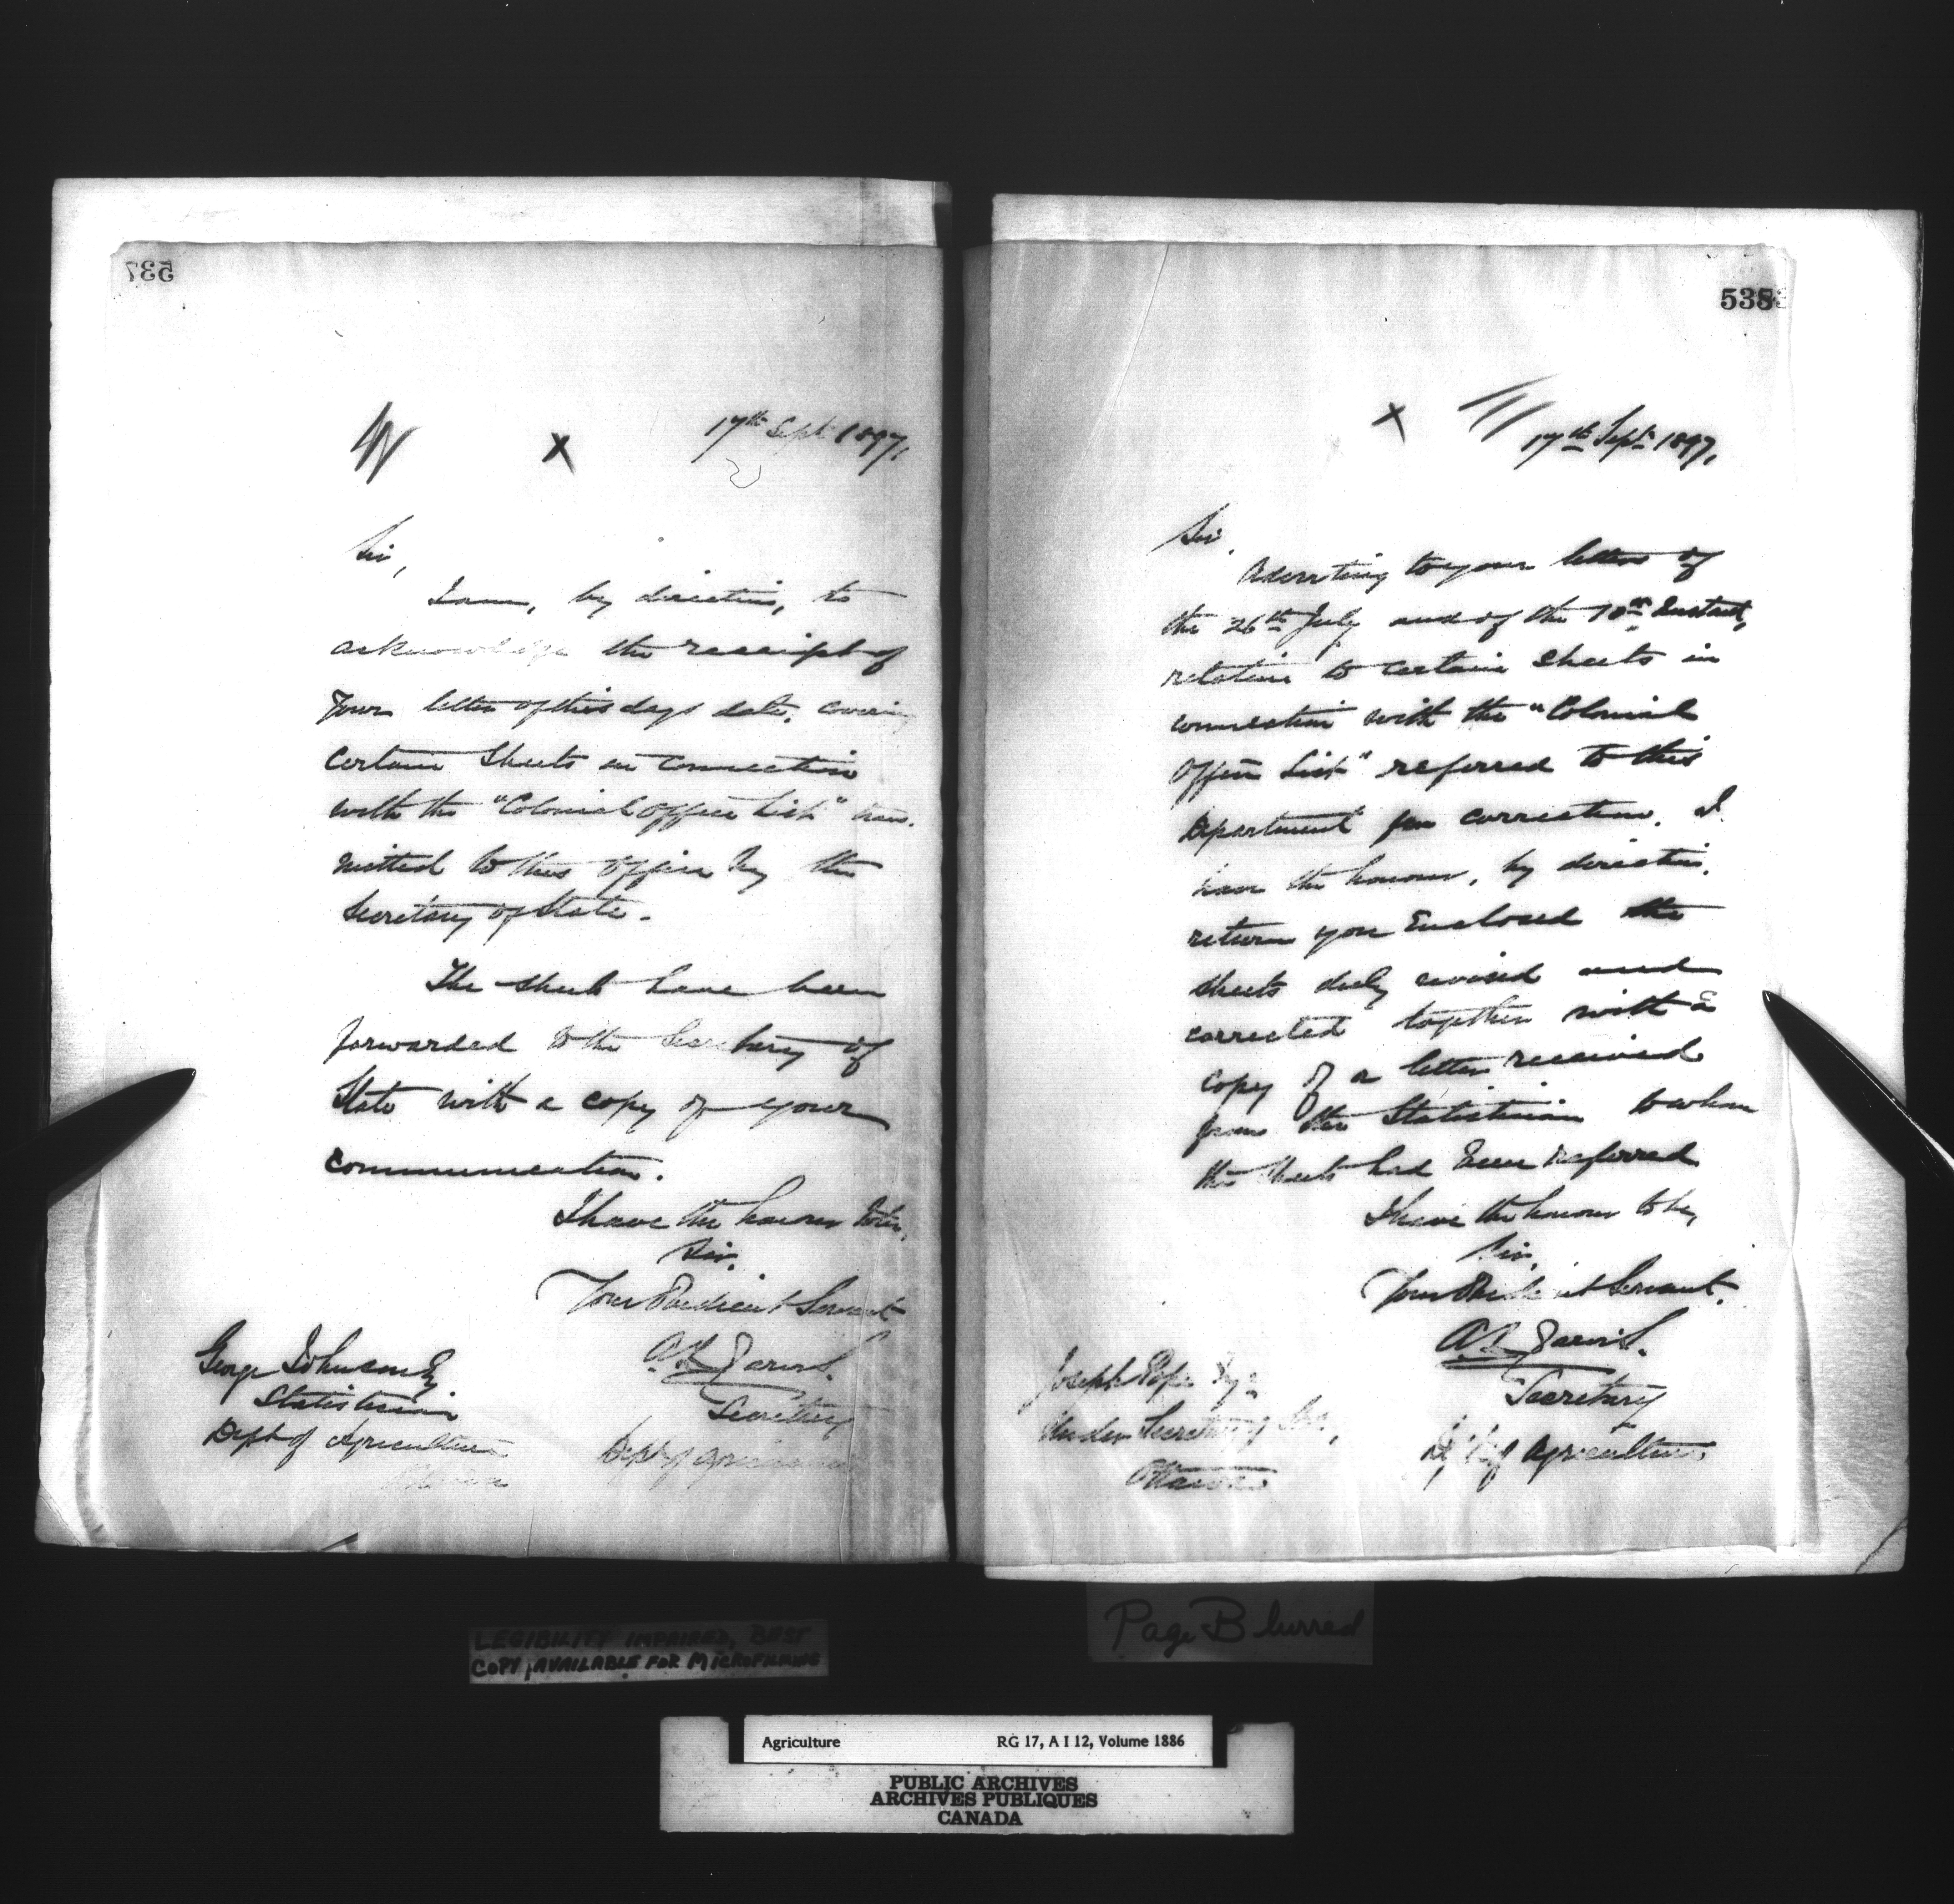 537
17th Sept 1897,
Sir,
I am, by direction, to
acknowledge the receipt of
Your letter of this days date, covering
certain Sheets in connection
with the "Colonial Office List" trans-
mitted to this Office by the
Secretary of State.
The sheets have been
forwarded to the Secretary of
State with a copy of your
communication.
I have the honour to be,
Sir,
Your Obedient Servant
A. L. Jarvis.
Secretary
Dept of Agriculture
George Johnson Esq
Statistician
Dept of Agriculture
Ottawa
538
17th Sept. 1897,
Sir,
Adverting to your letters of
the 26th July and of the 10th Instant,
relative to certain sheets in
connection with the "Colonial
Office List" referred to this
Department for correction. I
have the honour, by direction,
return you Enclosed the
sheets duly revised and
corrected together with a
copy of a letter received
from the Statistician to whom
the sheets had been referred
I have the honour to be,
Sir,
Your Obedient Servant.
A. L. Jarvis.
Secretary
Dept of Agriculture
Joseph Pope Esq
Under Secretary of State,
Ottawa
LEGIBILITY IMPAIRED, BEST
COPY AVAILABLE FOR MICROFILMING
Page Blurred
Agriculture RG 17, A I 12, Volume 1886
PUBLIC ARCHIVES
ARCHIVES PUBLIQUES
CANADA